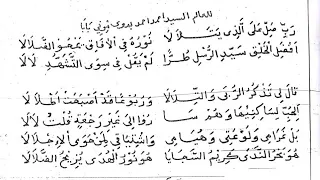 للعالم السيد احمد احمد بدوي توني بابا
رَبِّ صَلِّ عَلَى الَّذِي يَتَلَالَا نُورُهُ فِي الْآفَاقِ يَمْحُو الضَّلَالَا
أَفْضَلِ الْخَلْقِ سَيِّدِ الرُّسْلِ طُرًّا لَمْ يَقُلْ فِي سِوَى التَّشَهُّدِ لَا لَا
قَالَ لِي تَذْكُرُ الرُّبَى وَ التِّلَالَا وَ رُبُوعًا قَدْ أَصْبَحَتْ أَطْلَالَا
سَاكِنِيهَا وَ هُمْ رِفَاقًا إِلَى غَيْرِ رَجْعَةٍ قُلْتُ لَا لَا
بَلْ غَرَامِي وَ لَوْعَتِي وَ هُيَامِي وَ اشْتِيَاقِي لِمَنْ حَوَى الْإِجْلَالَا
هُوَ بَحْرُ النَّدَى كَرِيمُ السَّجَايَا هُوَ نُورُ الْهُدَى يُزِيحُ الضَّلَالَا